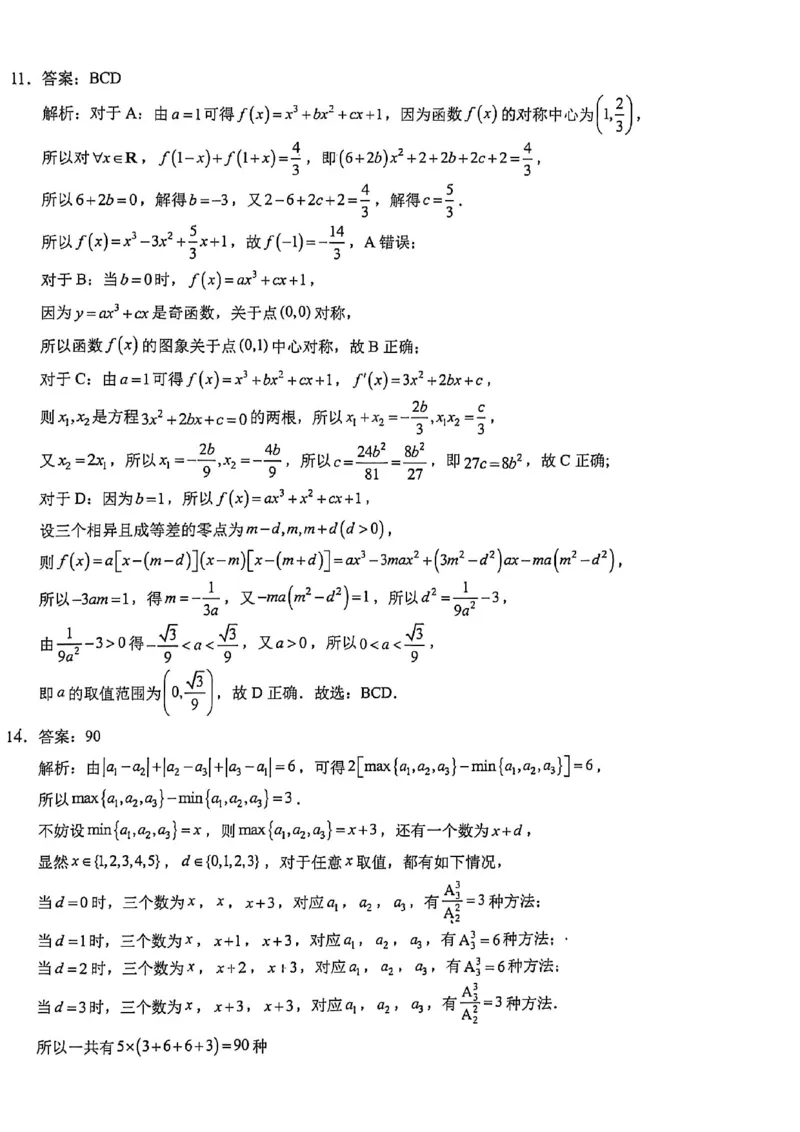 11．答案：BCD
解析：对于 A：由 a=1 可得 f(x)=x³+bx²+cx+1，因为函数 f(x) 的对称中心为 (1, 2/3)，
所以对 ∀x∈R，f(1−x)+f(1+x)=4/3，即 (6+2b)x²+2+2b+2c+2=4/3，
所以 6+2b=0，解得 b=−3，又 2−6+2c+2=4/3，解得 c=5/3．
所以 f(x)=x³−3x²+5/3x+1，故 f(−1)=−14/3，A 错误；
对于 B：当 b=0 时，f(x)=ax³+cx+1，
因为 y=ax³+cx 是奇函数，关于点 (0,0) 对称，
所以函数 f(x) 的图象关于点 (0,1) 中心对称，故 B 正确；
对于 C：由 a=1 可得 f(x)=x³+bx²+cx+1，f′(x)=3x²+2bx+c，
则 x₁,x₂ 是方程 3x²+2bx+c=0 的两根，所以 x₁+x₂=−2b/3, x₁x₂=c/3，
又 x₂=2x₁，所以 x₁=−2b/9, x₂=−4b/9，所以 c=24b²/81=8b²/27，即 27c=8b²，故 C 正确；
对于 D：因为 b=1，所以 f(x)=ax³+x²+cx+1，
设三个相异且成等差的零点为 m−d,m,m+d(d>0)，
则 f(x)=a[x−(m−d)](x−m)[x−(m+d)]=ax³−3max²+(3m²−d²)ax−ma(m²−d²)，
所以 −3am=1，得 m=−1/3a，又 −ma(m²−d²)=1，所以 d²=1/9a²−3，
由 1/9a²−3>0 得 −√3/9<a<√3/9，又 a>0，所以 0<a<√3/9，
即 a 的取值范围为 (0, √3/9)，故 D 正确．故选：BCD．
14．答案：90
解析：由 |a₁−a₂|+|a₂−a₃|+|a₃−a₁|=6，可得 2[max{a₁,a₂,a₃}−min{a₁,a₂,a₃}]=6，
所以 max{a₁,a₂,a₃}−min{a₁,a₂,a₃}=3．
不妨设 min{a₁,a₂,a₃}=x，则 max{a₁,a₂,a₃}=x+3，还有一个数为 x+d，
显然 x∈{1,2,3,4,5}，d∈{0,1,2,3}，对于任意 x 取值，都有如下情况，
当 d=0 时，三个数为 x，x，x+3，对应 a₁，a₂，a₃，有 A₃³/A₂²=3 种方法；
当 d=1 时，三个数为 x，x+1，x+3，对应 a₁，a₂，a₃，有 A₃³=6 种方法；
当 d=2 时，三个数为 x，x+2，x+3，对应 a₁，a₂，a₃，有 A₃³=6 种方法；
当 d=3 时，三个数为 x，x+3，x+3，对应 a₁，a₂，a₃，有 A₃³/A₂²=3 种方法．
所以一共有 5×(3+6+6+3)=90 种